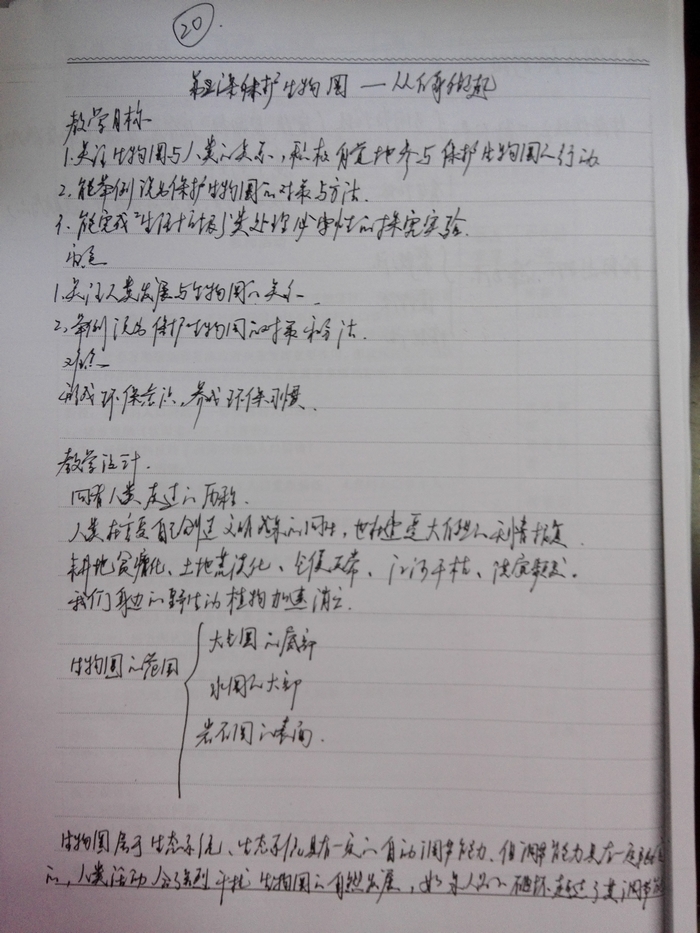 20
第三课 保护生物圈 — 从身做起
教学目标
1.关注生物圈与人类的关系，积极自觉地参与保护生物圈的行动
2.能举例说出保护生物圈的对策与方法.
3.能完成“生活垃圾”类处理必要性的探究实验.
重点
1.关注人类发展与生物圈的关系.
2.举例说出保护生物圈的对策和方法.
难点
形成环保意识，养成环保习惯.
教学设计.
回首人类走过的历程.
人类在享受自己创造文明成果的同时，也在遭受大自然的无情报复.
耕地贫瘠化、土地荒漠化、气候反常、江河干枯、洪灾频发。
我们身边的野生动植物加速消亡.
生物圈的范围
大气圈的底部
水圈的大部
岩石圈的表面.
生物圈属于生态系统、生态系统具有一定的自动调节能力、但调节能力是有一定限度
的，人类活动会强烈干扰生物圈的自然发展，如果人为的破坏超过了其调节能